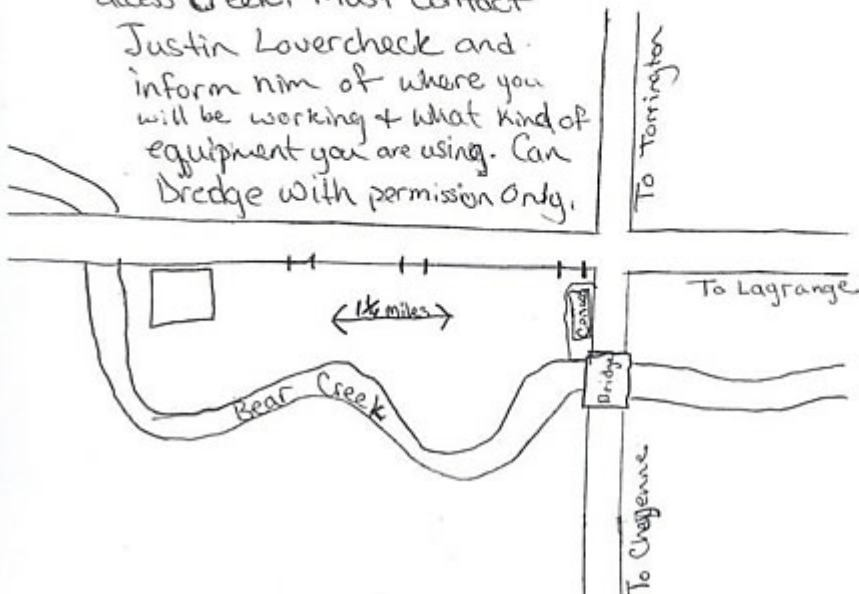 access Creek. Must Contact
Justin Lovercheck and
inform him of where you
will be working + what kind of
equipment you are using. Can
Dredge with permission Only.
To Torrington
To Lagrange
1¼ miles
Corral
Bridge
Bear Creek
To Cheyenne